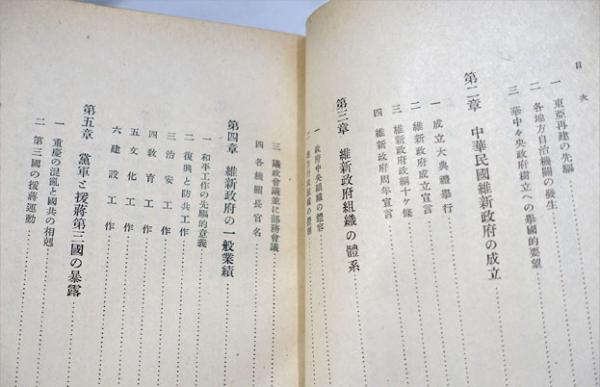 目次
一 東亞再建の先驅
二 各地方自治機關の發生
三 華中々央政府樹立への擧國的要望
第二章 中華民國維新政府の成立
一 成立大典禮擧行
二 維新政府成立宣言
三 維新政府政綱十ヶ條
四 維新政府周年宣言
第三章 維新政府組織の體系
一 政府中央組織の體容
三 議政會議並に部務會議
四 各機關長官名
第四章 維新政府の一般業績
一 和平工作の先驅的意義
二 復興と防共工作
三 治安工作
四 敎育工作
五 文化工作
六 建設工作
第五章 黨軍と援蔣第三國の暴露
一 重慶の混亂と國共の相剋
二 第三國の援蔣運動